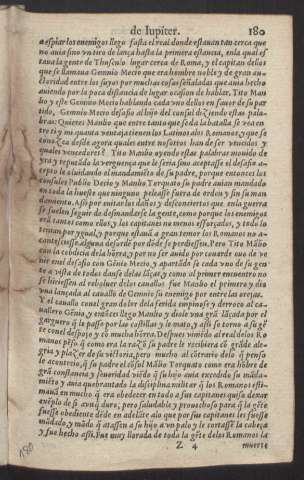 de Iupiter. 180
a espiar los enemigos llego hasta el real donde estauan tan cerca que
no auia sino vn tiro de lança hasta la primera estancia, en la qual es
taua la gente de Thusculo lugar cerca de Roma, y el capitan dellos
que se llamaua Gennio Mecio que era hombre noble y de gran au-
ctoridad entre los suyos por muchas cosas señaladas que auia hecho
auiendo por la poca distancia de lugar ocasion de hablar, Tito Man
lio y este Gennio Mecio hablando cada vno dellos en fauor de su par
tido, Gennio Mecio desafio al hijo del consul diziendo estas pala-
bras: Quieres Manlio que entre tanto que se da la batalla se vea en
tre ti y mi quanta ventaja tienen los Latinos a los Romanos, y que se
conozca desde agora quales entre nosotros han de ser vencidos y
quales vencedores? Tito Manlio oyendo estas palabras mouido de
yra y reputãdo la verguença que le seria sino aceptasse el desafio a-
cepto le oluidando el mandamiẽto de su padre, porque entonces los
consules Publio Decio y Manlio Torquato su padre auian mandado
en toda la hueste que ninguno peleasse fuera de orden y sin su man
damiento. Assi por euitar los daños y desconciertos que en la guerra
se suelen seguir de desmandarse la gente, como porque los enemigos
erã tantos como ellos, y los capitanes no menos esforçados, y todo lo
tenian por ygual, y porque estauã a gran temor los Romanos no a-
contesciesse alguna desordẽ por dõde se perdiessen. Pero Tito Mãlio
con la cobdicia de la hõrra, y por no ser auido por couarde vuo de ve
nir en el desafio con Gẽnio Mecio, y apartãdo se cada vno de su gen
te a vista de todos danse de las lãças, y como al primer encuentro no
se hiziessen al reboluer de los cauallos fue Manlio el primero y dio
vna lançada al cauallo de Gennio su enemigo por entre las orejas,
Y el cauallo con el gran dolor dela herida empinose y derroco al ca-
uallero Gẽnio, y entõces llego Manlio y diole vna grã lãçada por el
garguero q̃ le passo por las costillas y lo mato, y assi se torno a su gẽ
te con el despojo y cõ mucha hõrra. Despues venido al real delos Ro
manos pẽso q̃ como era la razõ su padre le resciuiera cõ grãde ale-
gria y plazer de su victoria, pero mucho al cõtrario delo q̃ penso
le acontecio, q̃ su padre el cõsul Mãlio Torquato como era hõbre de
grã constancia y seueridad viẽdo q̃ su hijo auia excedido su mãda-
miẽto y auia quebrantado la disciplina militar q̃ los Romanos esti-
mauã en mucho q̃ era obedecer en todo a sus capitanes quiso dexar
exẽplo de si avn q̃ duro, pero saludable y prouechoso para q̃ la gẽte
fuesse obediente dẽde en adelãte alo que por sus capitanes les fuesse
mãdado, y mãdo q̃ atassen a su hijo a vn palo y le cortassẽ la cabeça
y fue hecho assi. Fue muy llorada de toda la gẽte delos Romanos la
Z 4 muerte
180